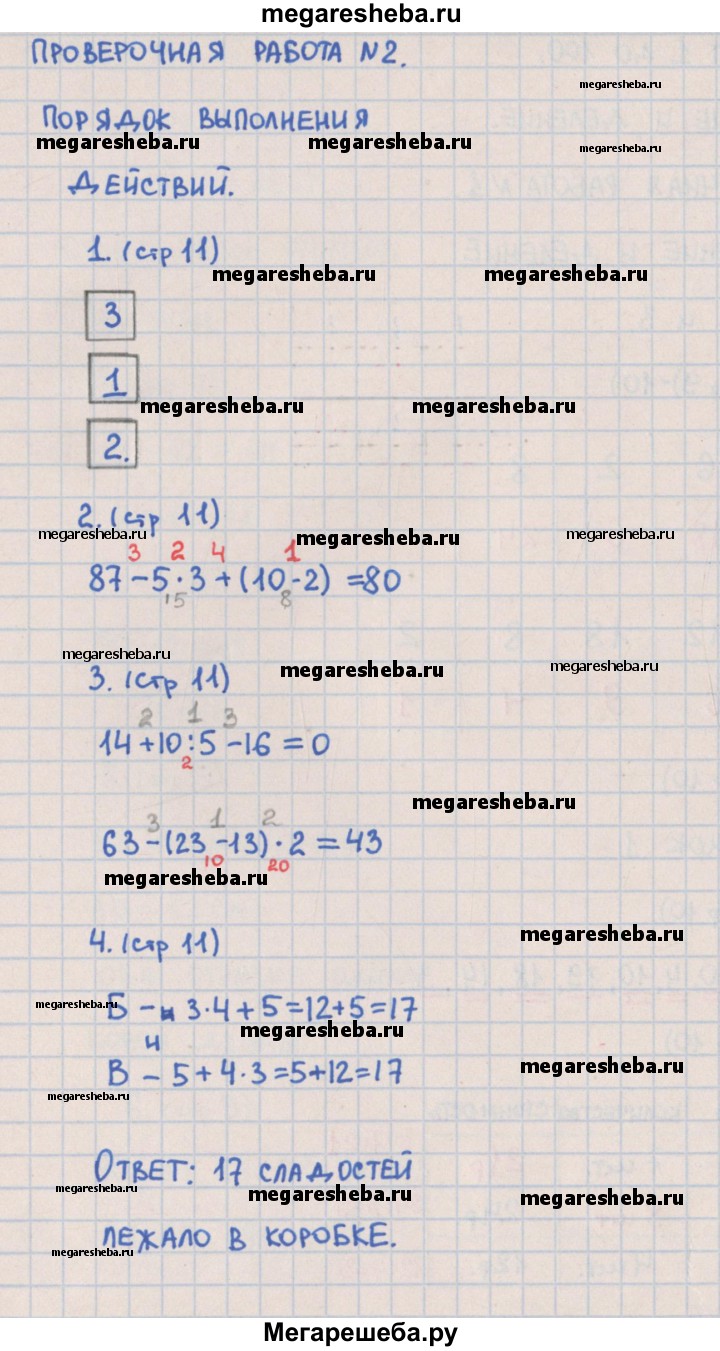 megaresheba.ru
ПРОВЕРОЧНАЯ РАБОТА №2.
megaresheba.ru
ПОРЯДОК ВЫПОЛНЕНИЯ
megaresheba.ru megaresheba.ru megaresheba.ru
ДЕЙСТВИЙ.
1. (стр 11)
megaresheba.ru megaresheba.ru
3
1
megaresheba.ru megaresheba.ru
2.
2. (стр 11)
megaresheba.ru megaresheba.ru megaresheba.ru
3 2 4 1
87-5·3+(10-2)=80
15 8
megaresheba.ru megaresheba.ru megaresheba.ru
3. (стр 11)
2 1 3
14+10:5-16=0
2
megaresheba.ru
3 1 2
63-(23-13)·2=43
10 20
megaresheba.ru
4. (стр 11)
megaresheba.ru
megaresheba.ru
Б - 3·4+5=12+5=17
megaresheba.ru
и
megaresheba.ru
В - 5+4·3=5+12=17
megaresheba.ru
ОТВЕТ: 17 СЛАДОСТЕЙ
megaresheba.ru megaresheba.ru megaresheba.ru
ЛЕЖАЛО В КОРОБКЕ.
megaresheba.ru
Мегарешеба.ру